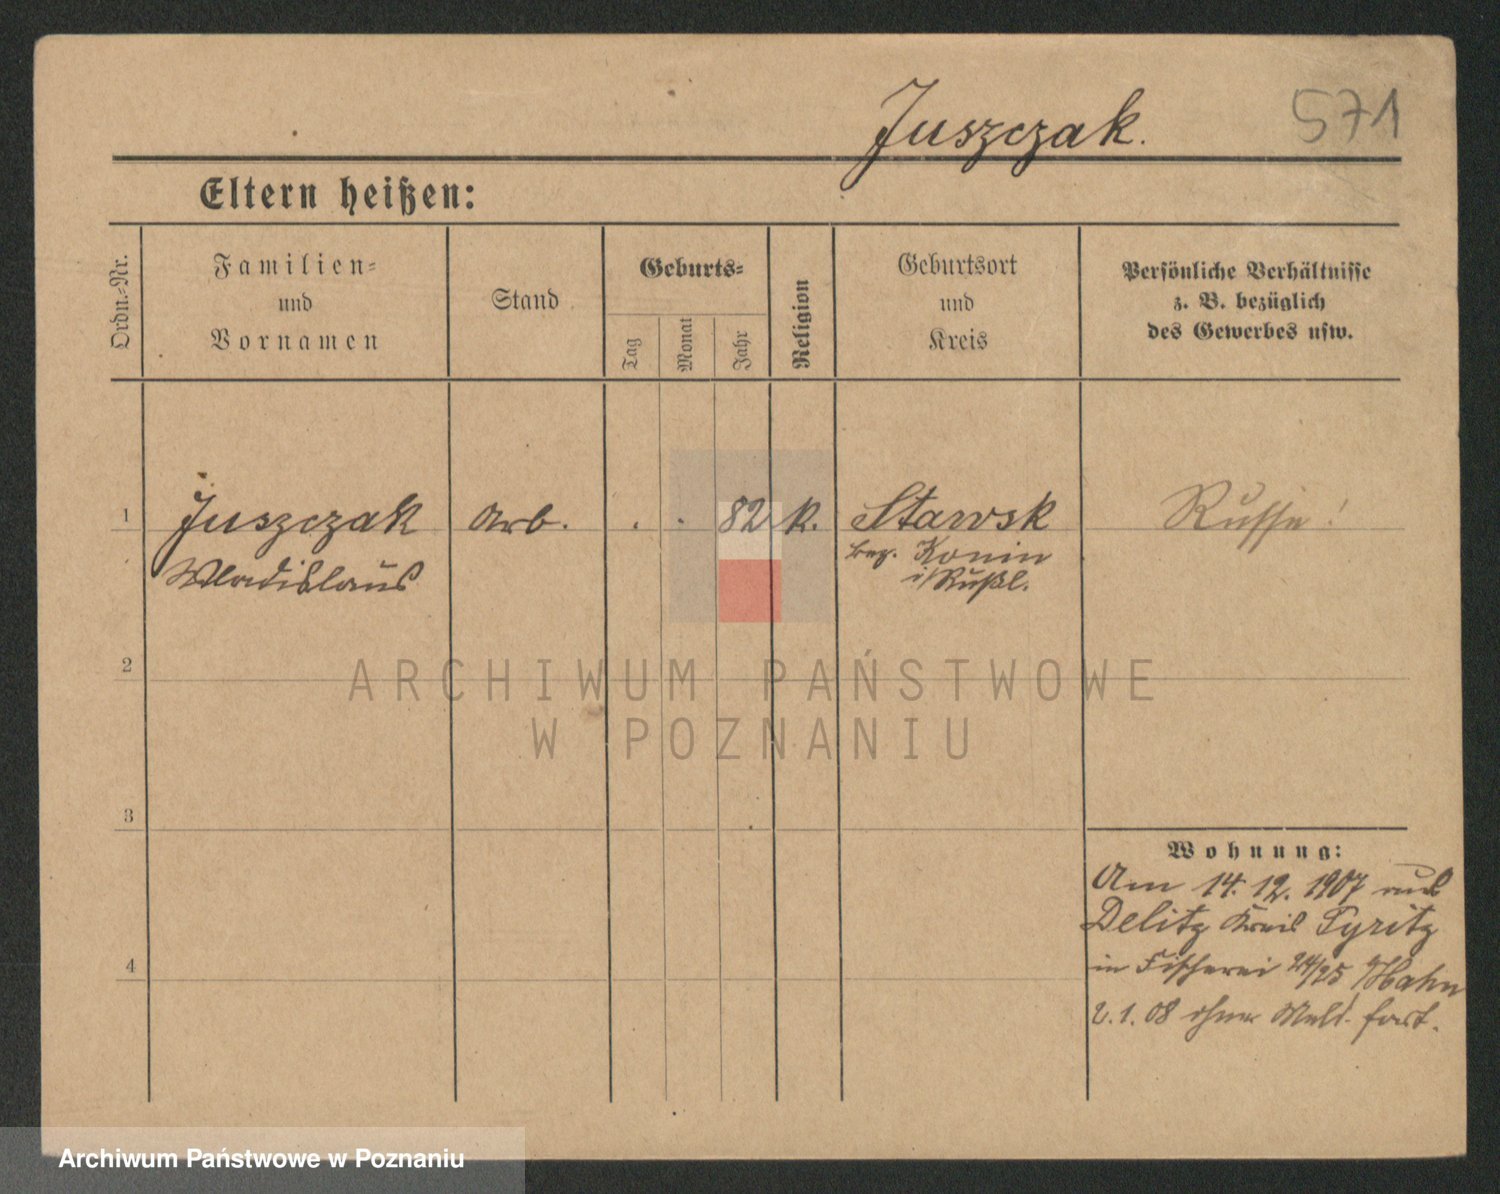 Juszczak.
571
Eltern heißen:
Ordn.-Nr.
Familien-
und
Vornamen
Stand
Geburts-
Tag
Monat
Jahr
Religion
Geburtsort
und
Kreis
Persönliche Verhältnisse
z. B. bezüglich
des Gewerbes usw.
1
Juszczak
Wladislaus
Arb.
. . 82
k.
Stawsk
bez. Konin
i/Rußl.
Russe!
2
ARCHIWUM PAŃSTWOWE
W POZNANIU
3
4
Wohnung:
Am 14.12.1907 aus
Delitz Kreis Pyritz
in Fischerei 24/25 Hahn
2.1.08 ohne Meld. fort.
Archiwum Państwowe w Poznaniu